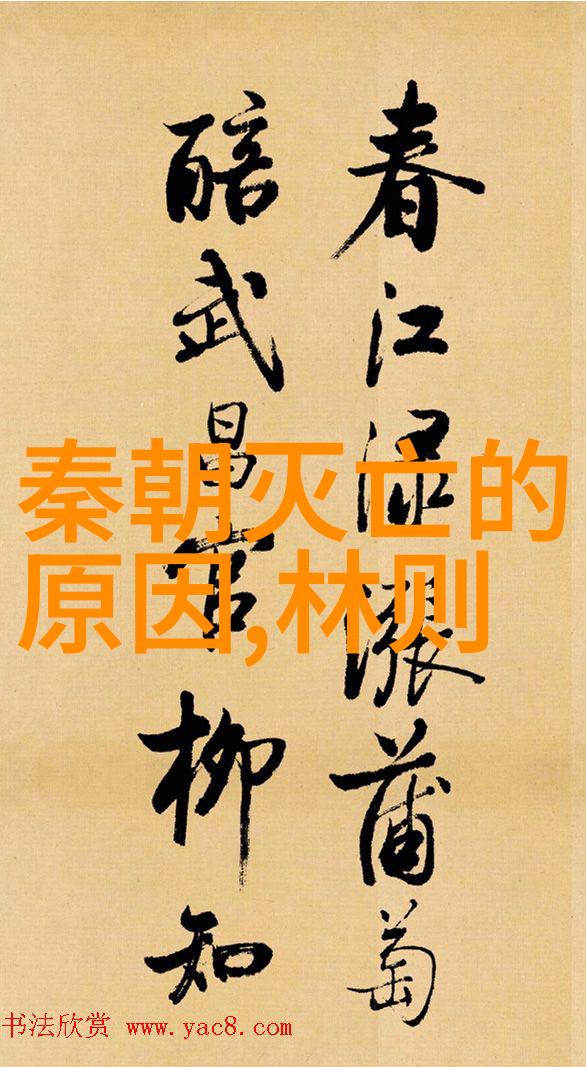 春江渌漲蒲萄
醅武昌官柳知
秦朝灭亡的
原因,林则
书法欣赏 www.yac8.com